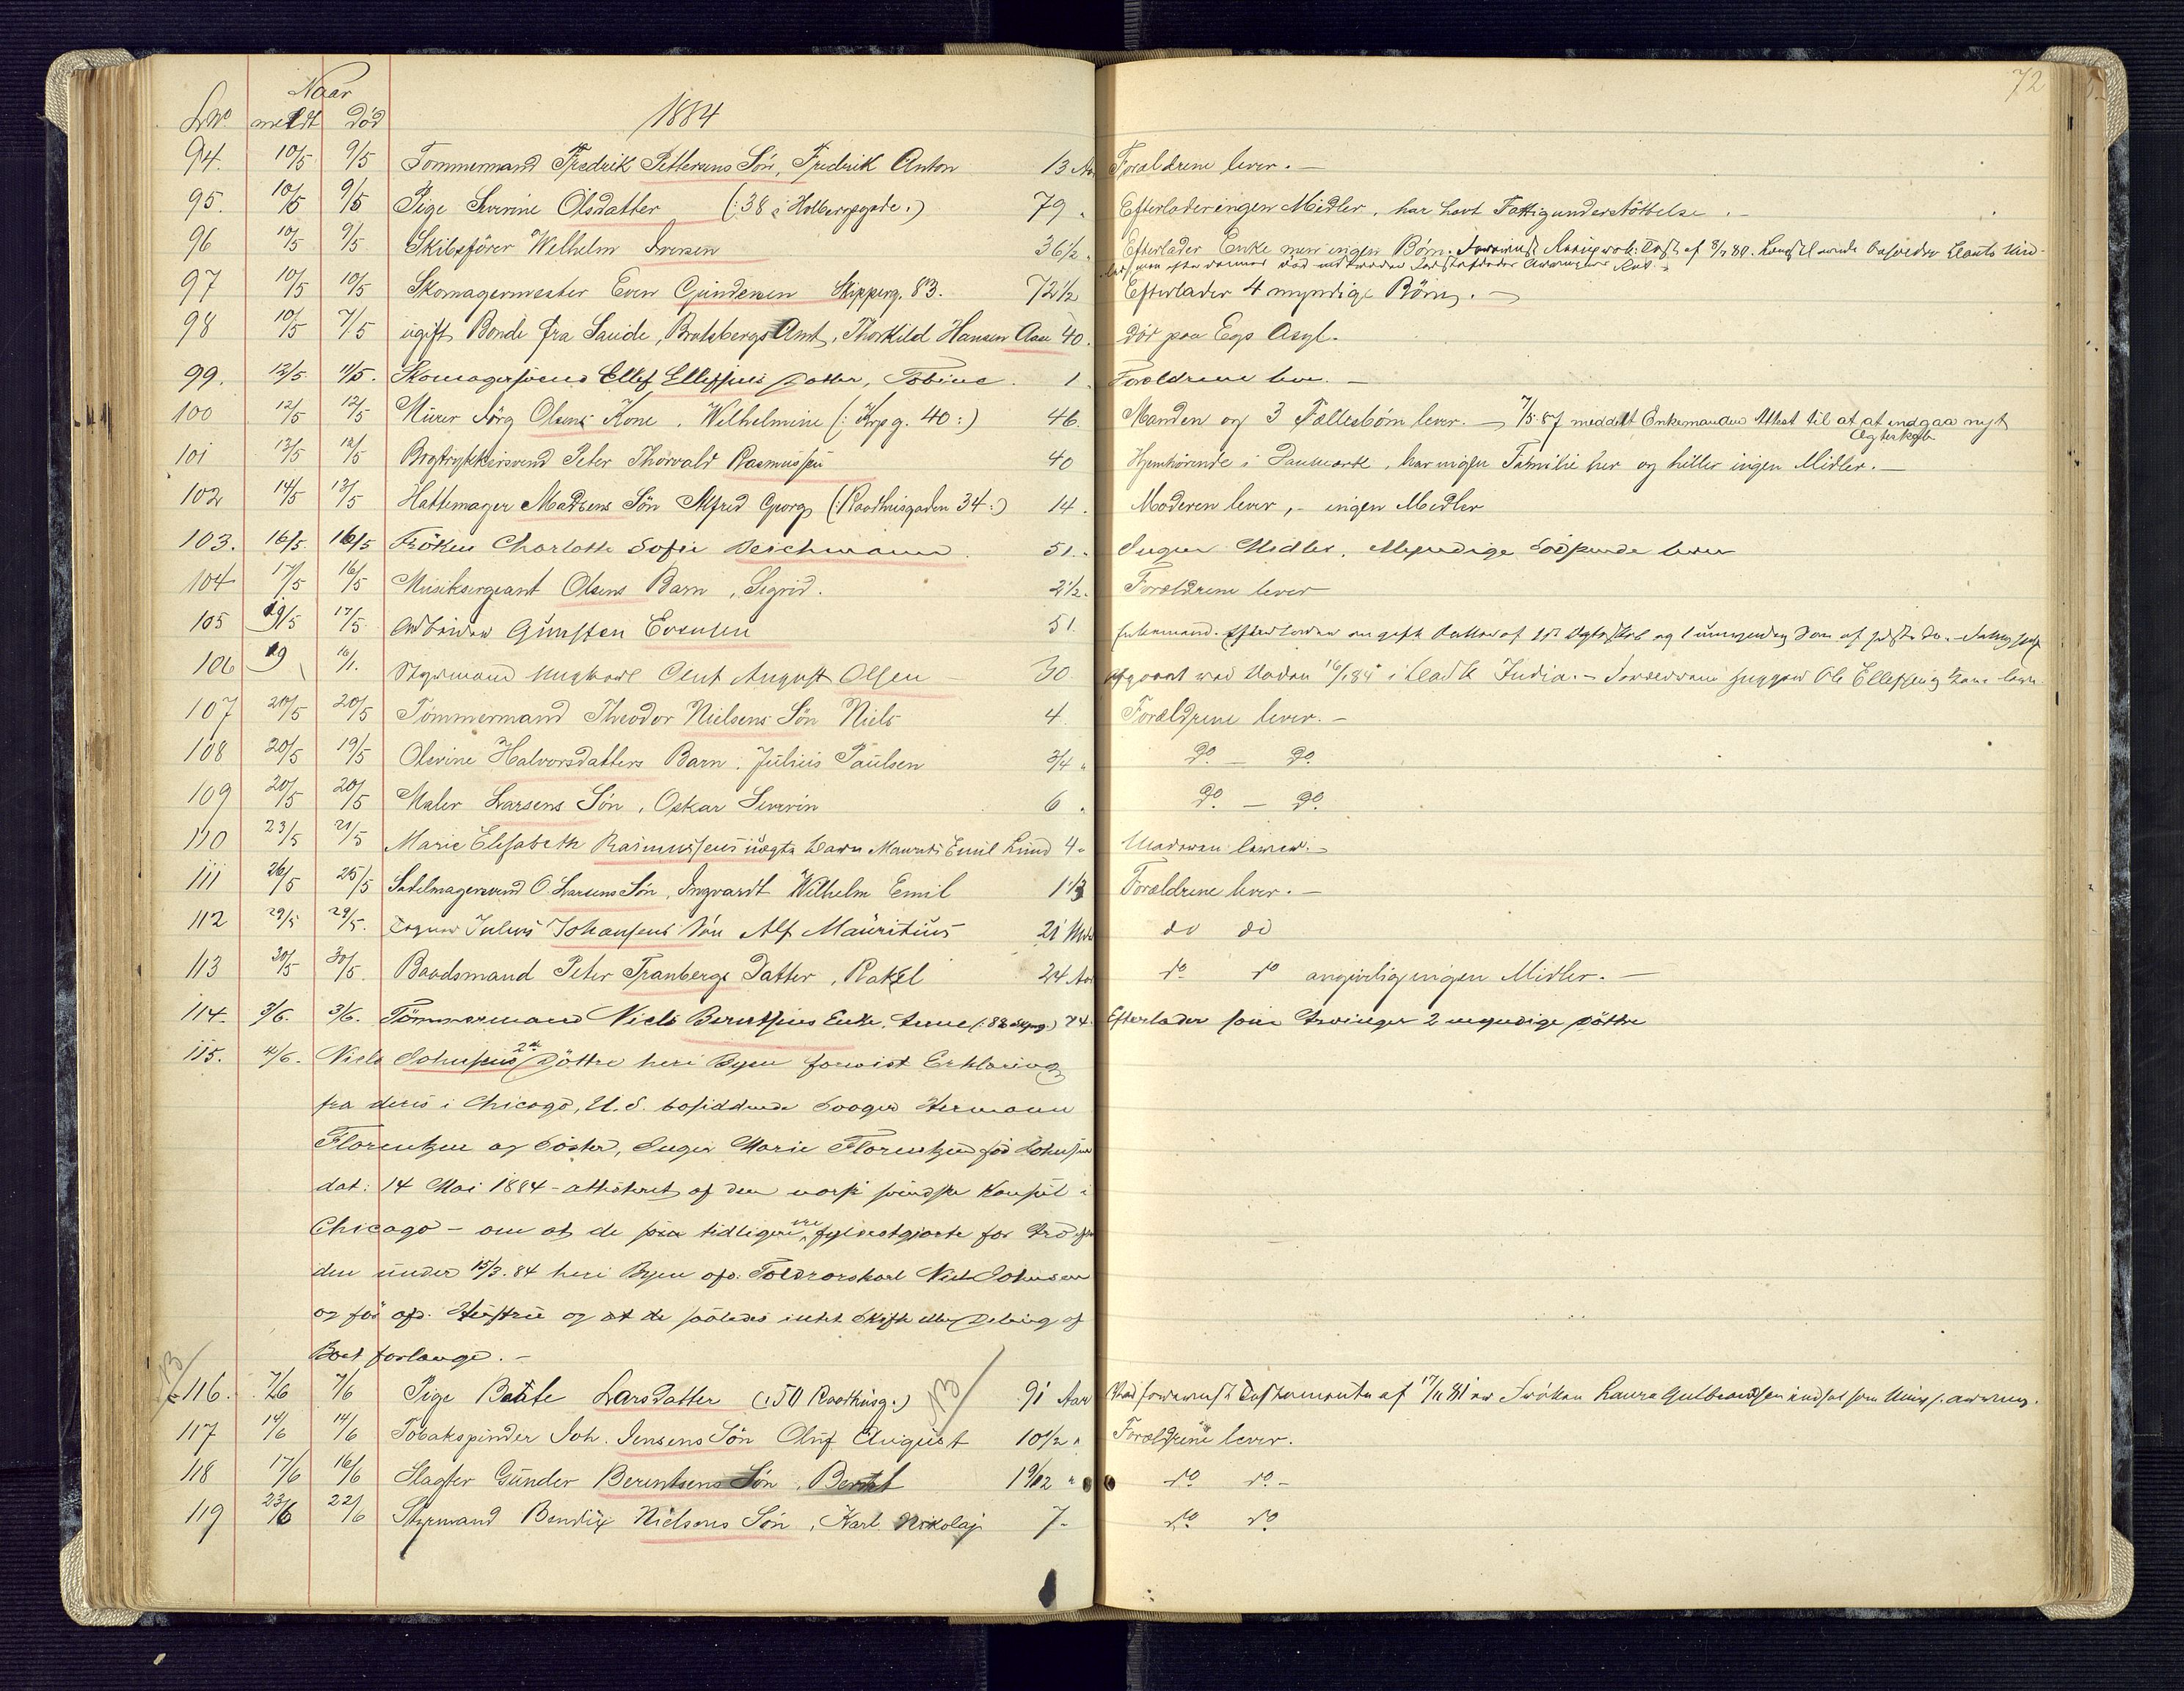 72
Naar
LNo. meldt död 1884
94. 10/5 9/5 Tømmermand Fredrik Pettersens Sön, Fredrik Anton 13 Aar Forældrene lever. —
95. 10/5 9/5 Pige Severine Olsdatter (: 38 i Holbergsgade :) 79 " Efterlader ingen Midler, har havt Fattigunderstöttelse. —
96 10/5 9/5 Skibsfører Wilhelm Iversen 36 1/2 " Efterlader Enke men ingen Börn.
97 10/5 10/5 Skomagermester Even Gundersen Skipperg. 83. 72 1/2 Efterlader 4 myndige Börn. —
98 10/5 7/5 ugift Bonde fra Saude, Bratsbergs Amt, Thorkild Hansen Aase 40. död paa Egs Asyl.
99. 12/5 11/5. Skomagersvend Ellef Ellefsens Datter, Tobine. 1. Forældrene lever. —
100 12/5 12/5 Murer Jörg Olsens Kone, Wilhelmine (: Krpg. 40 :) 46. Manden og 3 Fællesbörn lever. — 7/5 87 meddelt Enkemanden Attest til at at indgaa nyt
Ægteskab
101 13/5 12/5 Bogtrykkersvend Peter Thorvald Rasmussen 40 Hjemhörende i Danmark, har ingen Familie her og heller ingen Midler. —
102 14/5 13/5 Hattemager Madsens Sön Alfred Georg (: Raadhusgaden 34 :) 14. Moderen lever, - ingen Midler
103. 16/5 16/5 Fröken Charlotte Sofie Deichmann. 51. " Ingen Midler. Myndige Södskende lever
104 17/5 16/5 Musiksergeant Olsens Barn, Sigrid. 2 1/2. Forældrene lever
105 19/5 17/5 Arbeider Gunsten Evensen 51 Enkemand.
106 19 16/1. Styrmand Ungkarl Olut August Olsen 30
107 20/5 20/5 Tömmermand Theodor Nielsens Sön Niels 4. Forældrene lever. —
108 20/5 19/5 Olevine Halvorsdatters Barn. Julius Paulsen 3/4 " Do — Do
109 20/5 20/5 Maler Larsens Sön, Oskar Severin 6 " Do. — Do.
110 23/5 21/5 Marie Elisabeth Rasmussens uægte Barn Emil Lund 4 " Moderen lever. —
111 26/5 25/5 Sadelmagersvend O. Larsens Sön, Ingvardt Wilhelm Emil 1 1/3 Forældrene lever. —
112 29/5 29/5. Julius Johansens Sön Alf Mauritius 21 Mdr do do
113 30/5 30/5. Baadsmand Peter Tranbergs Datter, Rakel 24 Aar do do angivelig ingen Midler. —
114. 3/6. 3/6. Tömmermand Niels Berntsens Enke, Anne 74. Efterlader som Arvinger 2 myndige Döttre
115. 4/6. Niels Johnsens 2de Döttre heri Byen forevist Erklæring
fra deres i Chicago, U. S. bosiddende Svoger Hermann
Florentzen og Söster, Inger Marie Florentzen född Johnsen
dat: 14 Mai 1884 - attesteret af den norsk svendske Konsul i
Chicago - om at de som tidligere ere fyldestgjorte for Arv efter
den under 15/3. 84 heri Byen afd. Toldroerskarl Niels Johnsen
og för afd. Hustru og at de saaledes intet Skifte eller Deling af
Boet forlange. —
NB
116. 7/6 7/6 Pige Beate Larsdatter (: 50 Raadhusg. :) NB 91 Aar
117 14/6 14/6 Tobakspinder Joh. Jensens Sön Oluf August 10 1/2 " Forældrene lever.
118 17/6 16/6 Slagter Gunder Berentsens Sön, Berent 1 9/12 " do do —
119 23/6 22/6 Styrmand Bendix Nielsens Sön, Karl Nikolaj 7 - do do